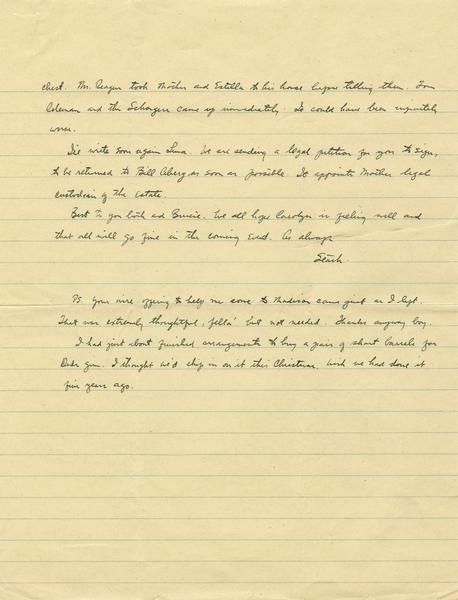 chest. Mr. Reagen took Mother and Estella to his house before telling them. Tom
Coleman and the Schorgers came up immediately. It could have been infinitely
worse.
I'll write soon again Luna. We are sending a legal petition for you to sign,
to be returned to Bill Aberg as soon as possible. It appoints Mother legal
custodian of the Estate.
Best to you both and Brucie. We all hope Carolyn is feeling well and
that all will go fine in the coming event. As always
Starker
PS. Your wire offering to help me come to Madison came just as I left.
That was extremely thoughtful, 'fella' but not needed. Thanks anyway boy.
I had just about finished arrangements to buy a pair of short barrels for
Dads gun. I thought we'd chip in on it this Christmas, wish we had done it
five years ago.